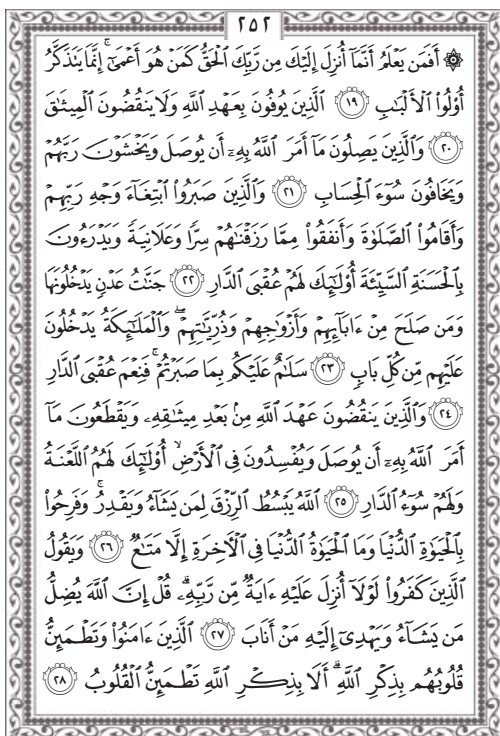 ٢٥٢
۞ أَفَمَن يَعْلَمُ أَنَّمَآ أُنزِلَ إِلَيْكَ مِن رَّبِّكَ ٱلْحَقُّ كَمَنْ هُوَ أَعْمَىٰٓ ۚ إِنَّمَا يَتَذَكَّرُ
أُو۟لُوا۟ ٱلْأَلْبَٰبِ ١٩ ٱلَّذِينَ يُوفُونَ بِعَهْدِ ٱللَّهِ وَلَا يَنقُضُونَ ٱلْمِيثَٰقَ
٢٠ وَٱلَّذِينَ يَصِلُونَ مَآ أَمَرَ ٱللَّهُ بِهِۦٓ أَن يُوصَلَ وَيَخْشَوْنَ رَبَّهُمْ
وَيَخَافُونَ سُوٓءَ ٱلْحِسَابِ ٢١ وَٱلَّذِينَ صَبَرُوا۟ ٱبْتِغَآءَ وَجْهِ رَبِّهِمْ
وَأَقَامُوا۟ ٱلصَّلَوٰةَ وَأَنفَقُوا۟ مِمَّا رَزَقْنَٰهُمْ سِرًّا وَعَلَانِيَةً وَيَدْرَءُونَ
بِٱلْحَسَنَةِ ٱلسَّيِّئَةَ أُو۟لَٰٓئِكَ لَهُمْ عُقْبَى ٱلدَّارِ ٢٢ جَنَّٰتُ عَدْنٍ يَدْخُلُونَهَا
وَمَن صَلَحَ مِنْ ءَابَآئِهِمْ وَأَزْوَٰجِهِمْ وَذُرِّيَّٰتِهِمْ ۖ وَٱلْمَلَٰٓئِكَةُ يَدْخُلُونَ
عَلَيْهِم مِّن كُلِّ بَابٍ ٢٣ سَلَٰمٌ عَلَيْكُم بِمَا صَبَرْتُمْ ۚ فَنِعْمَ عُقْبَى ٱلدَّارِ
٢٤ وَٱلَّذِينَ يَنقُضُونَ عَهْدَ ٱللَّهِ مِنۢ بَعْدِ مِيثَٰقِهِۦ وَيَقْطَعُونَ مَآ
أَمَرَ ٱللَّهُ بِهِۦٓ أَن يُوصَلَ وَيُفْسِدُونَ فِى ٱلْأَرْضِ ۙ أُو۟لَٰٓئِكَ لَهُمُ ٱللَّعْنَةُ
وَلَهُمْ سُوٓءُ ٱلدَّارِ ٢٥ ٱللَّهُ يَبْسُطُ ٱلرِّزْقَ لِمَن يَشَآءُ وَيَقْدِرُ ۚ وَفَرِحُوا۟
بِٱلْحَيَوٰةِ ٱلدُّنْيَا وَمَا ٱلْحَيَوٰةُ ٱلدُّنْيَا فِى ٱلْءَاخِرَةِ إِلَّا مَتَٰعٌ ٢٦ وَيَقُولُ
ٱلَّذِينَ كَفَرُوا۟ لَوْلَآ أُنزِلَ عَلَيْهِ ءَايَةٌ مِّن رَّبِّهِۦ ۗ قُلْ إِنَّ ٱللَّهَ يُضِلُّ
مَن يَشَآءُ وَيَهْدِىٓ إِلَيْهِ مَنْ أَنَابَ ٢٧ ٱلَّذِينَ ءَامَنُوا۟ وَتَطْمَئِنُّ
قُلُوبُهُم بِذِكْرِ ٱللَّهِ ۗ أَلَا بِذِكْرِ ٱللَّهِ تَطْمَئِنُّ ٱلْقُلُوبُ ٢٨